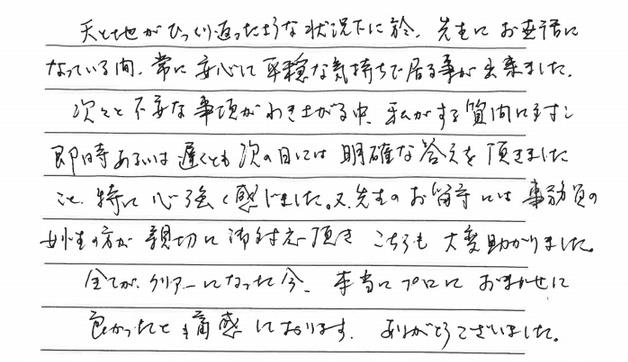 天と地がひっくり返ったような状況下に於、先生にお世話に
なっている間、常に安心して平穏な気持ちで居る事が出来ました。
次々と不安な事項がわき上がる中、私がする質問に対し
即時あるいは遅くとも次の日には明確な答えを頂きました
こと、特に心強く感じました。又、先生のお留守には事務員の
女性の方が親切に御対応頂きこちらも大変助かりました。
全てがクリアーになった今、本当にプロにおまかせして
良かったと痛感しております。ありがとうございました。